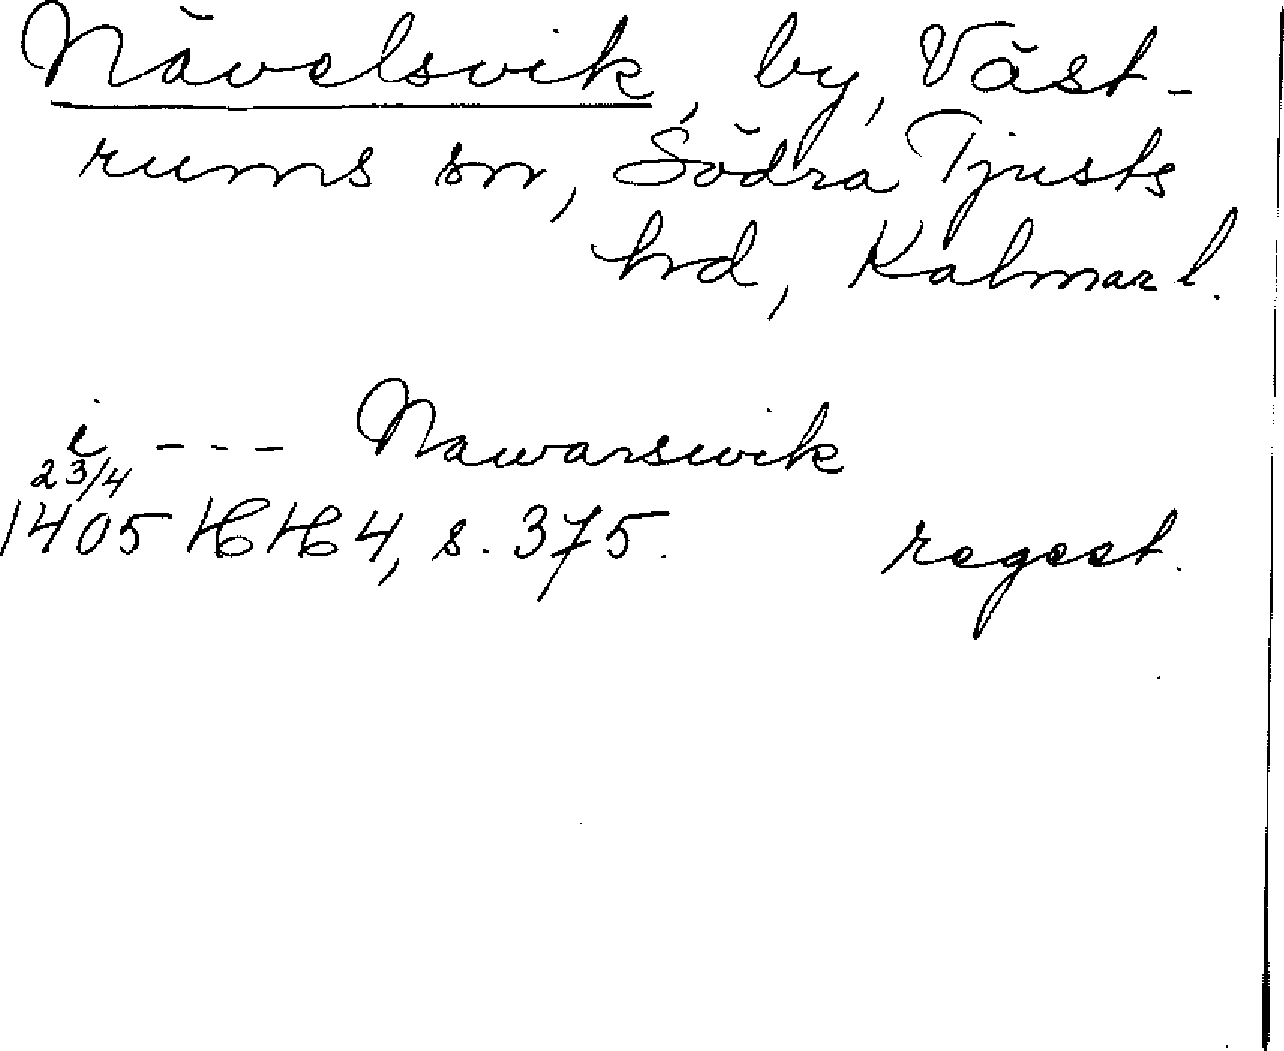 Nävelsvik, by, Väst-
rums sn, Södra Tjusts
hd, Kalmar l.
i --- Nawarswik
23/4
1405 HH 4, s. 375. regest.